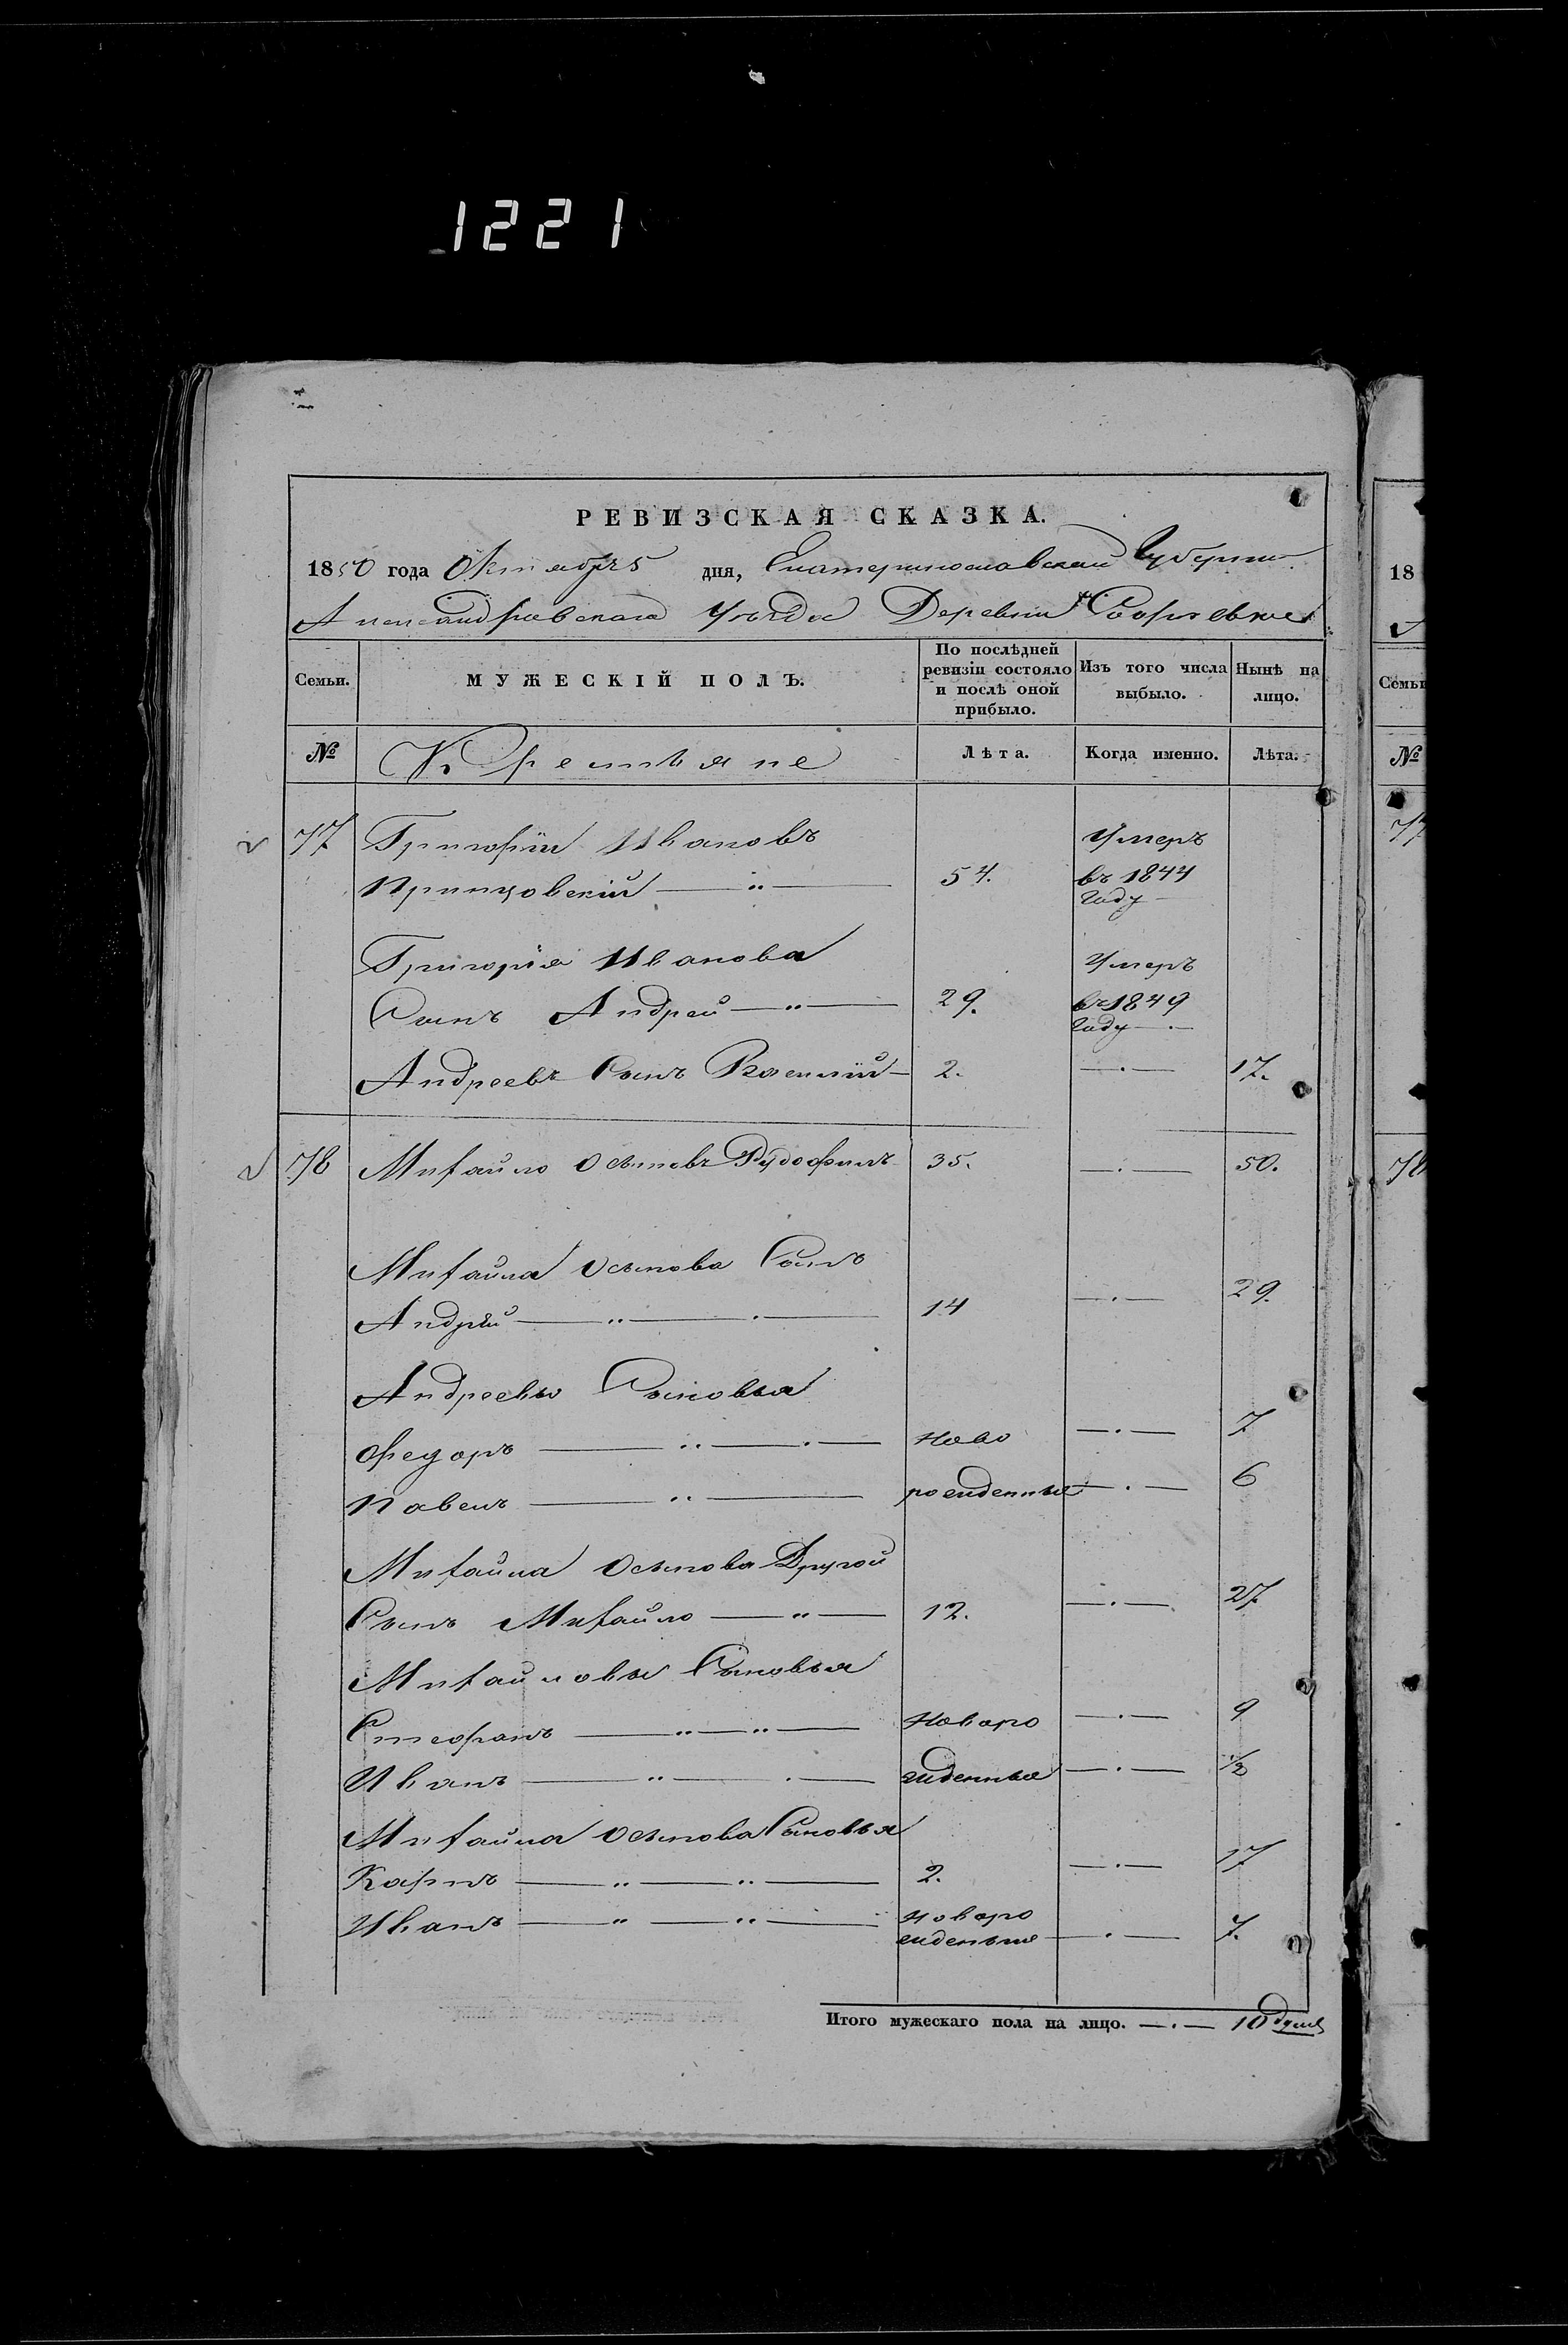 1221
РЕВИЗСКАЯ СКАЗКА.
1850 года Октября 5 дня, Екатеринославской Губернии
Александровскаго Уѣзда Деревни
Семьи. МУЖЕСКІЙ ПОЛЪ. По послѣдней ревизіи состояло и послѣ оной прибыло. Изъ того числа выбыло. Нынѣ на лицо.
№ Крестьяне Лѣта. Когда именно. Лѣта.
77 Григорій Ивановъ Умеръ
54. въ 1844
году
Григорія Иванова Умеръ
Сынъ Андрей 29. въ 1849
году
Андреевъ Сынъ Василій 2. 17.
78 Михайло Осиповъ 35. 50.
Михайла Осипова Сынъ
Андрій 14 29.
Андреевы Сыновья
Федоръ Ново 7
Павелъ рожденныя 6
Михайла Осипова Другой
Сынъ Михайло 12. 27.
Михайловы Сыновья
Стефанъ Новоро 9
Иванъ жденныя 1/2
Михайла Осипова Сыновья
Карпъ 2. 17
Иванъ Новоро
жденные 7.
Итого мужескаго пола на лицо. 10 душъ
18
Семьи
№
77
78